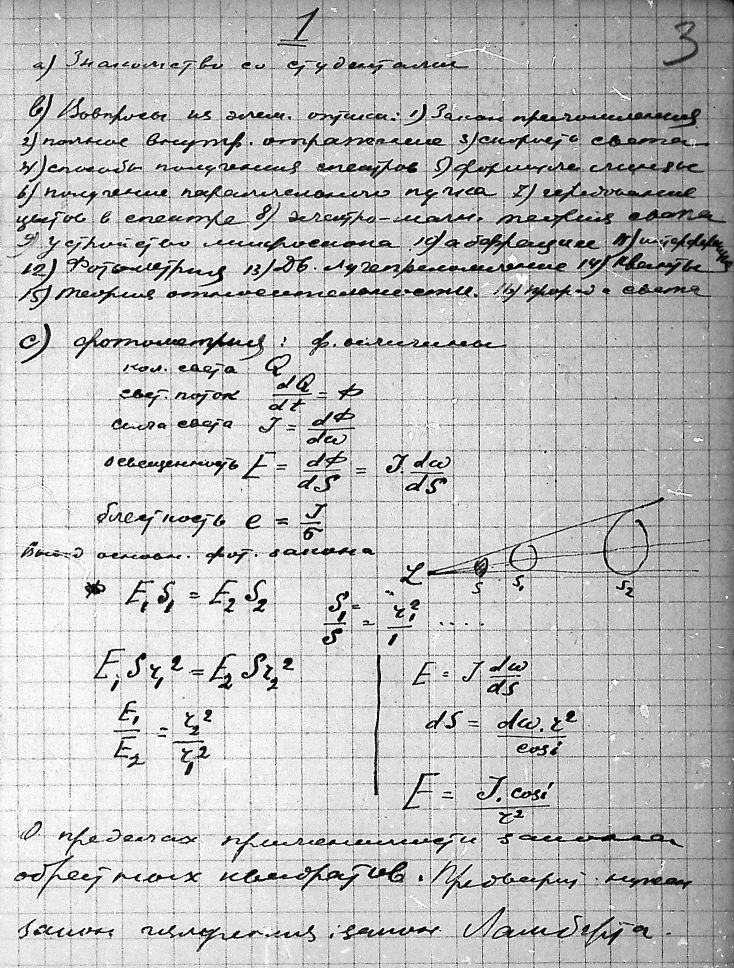 1
3
а) Знакомство со студентами
в) Вопросы из элем. оптики: 1) Закон преломления
2) полное внутр. отражение 3) скорость света
4) способы получения спектров 5) формула линзы
6) получение параллельного пучка 7) чередование
цветов в спектре 8) электро-магн. теория света
9) устройство микроскопа 10) аберрации 11) интерференция
12) Фотометрия 13) Дв. лучепреломление 14) Кванты
15) теория относительности. 16) природа света
с) фотометрия: ф. величины
кол. света Q
свет. поток dQ/dt = Ф
сила света J = dФ/dω
освещенность E = dФ/dS = J.dω/dS
блесткость e = J/σ
Вывод основн. фот. закона
L S S₁ S₂
E₁S₁ = E₂S₂ S₁/S = r₁²/1 ....
E₁Sr₁² = E₂Sr₂² E = J dω/dS
E₁/E₂ = r₂²/r₁² dS = dω.r²/cosi
E = J.cosi/r²
О пределах применимости закона
обратных квадратов.
закон излучения, закон Ламберта.